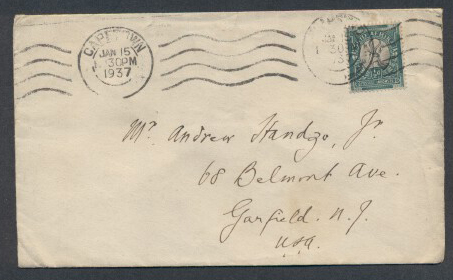 CAPE TOWN
JAN 15
30PM
1937
Mr. Andrew Handzo, Jr.
68 Belmont Ave.
Garfield. N.J.
U.S.A.